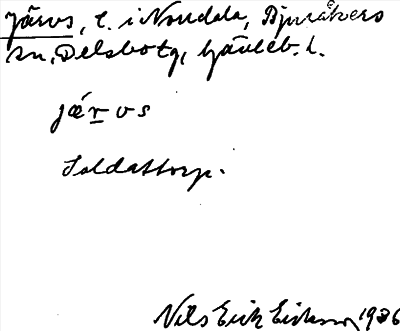 Järvs, l. i Norrdala, Bjuråkers
sn, Delsbo tg, Gävleb. l.
jærvs
Soldattorp.
Nils Eick Eriksson 1936